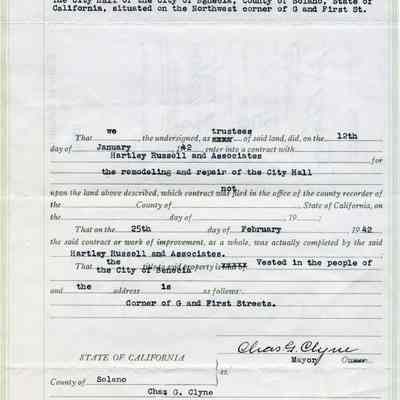 The City Hall of the City of Benecia, County of Solano, State of
California, situated on the Northwest corner of G and First St.
That we , the undersigned, as trustees of said land, did, on the 12th
day of January 1942 enter into a contract with
Hartley Russell and Associates for
the remodeling and repair of the City Hall
upon the land above described, which contract was not filed in the office of the county recorder of
the County of , State of California, on
the day of , 19 ;
That on the 25th day of February 1942
the said contract or work of improvement, as a whole, was actually completed by the said
Hartley Russell and Associates.
That the title to said property is Vested in the people of
the City of Benecia
and the address is as follows:
Corner of G and First Streets.
Chas G. Clyne
Mayor
STATE OF CALIFORNIA
ss.
County of Solano
Chas G. Clyne